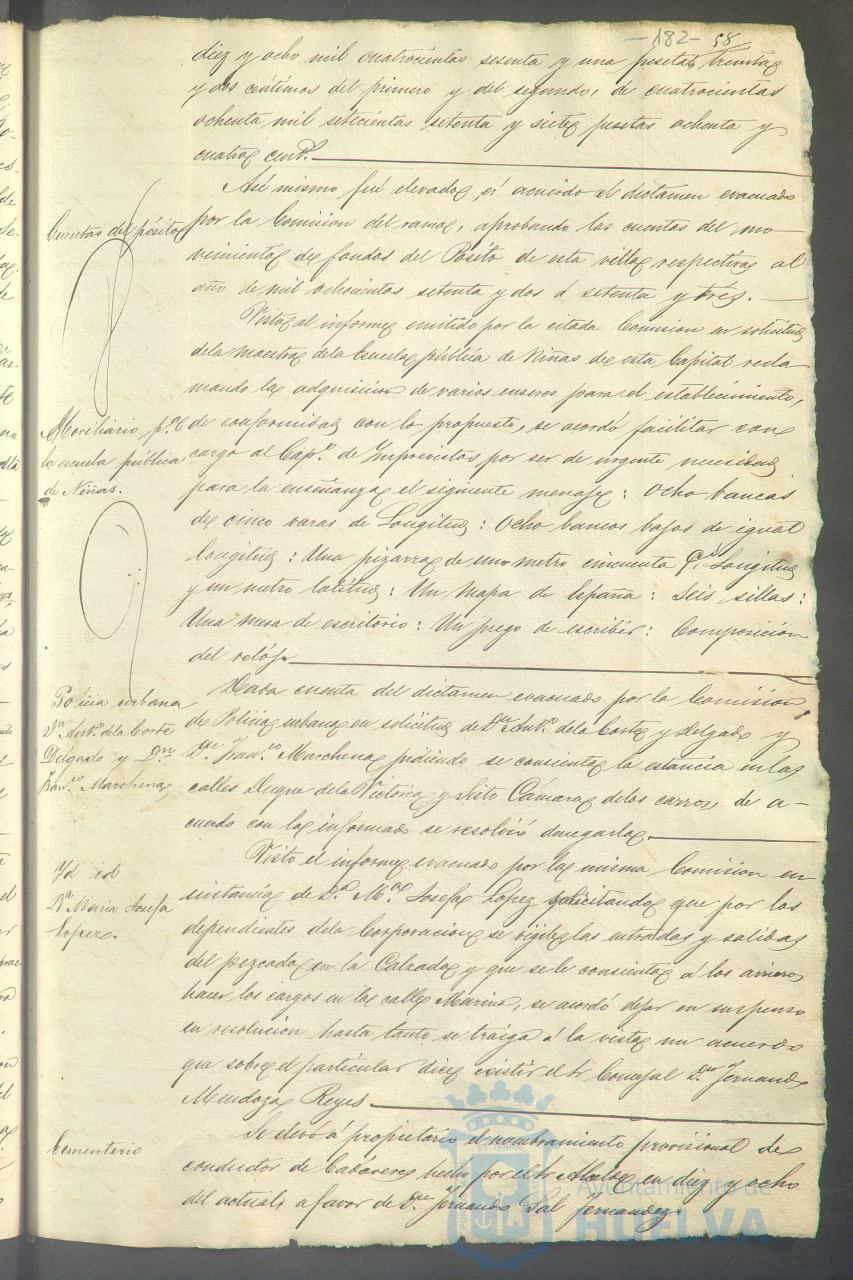 -182- 58
diez y ocho mil cuatrocientas sesenta y una pesetas treinta
y dos céntimos del primero y del segundo, de cuatrocientas
ochenta mil setecientas setenta y siete pesetas ochenta y
cuatro centº.
Así mismo fué elevado á acuerdo el dictamen evacuado
Cuentas del pósito
por la Comision del ramo, aprobando las cuentas del mo-
vimiento de fondos del Posito de esta villa respectivas al
año de mil ochocientos setenta y dos á setenta y tres.
Visto el informe emitido por la citada Comision en solicitud
de la maestra de la Escuela pública de Niñas de esta Capital recla-
mando la adquisicion de varios enseres para el establecimiento,
Moviliario pª
la escuela pública
de Niñas.
de conformidad con lo propuesto, se acordó facilitar con
cargo al Capº. de Imprevistos por ser de urgente necesidad
para la enseñanza el siguiente menaje: Ocho bancas
de cinco varas de Longitud: Ocho bancos bajos de igual
longitud: Una pizarra de uno metro cincuenta Longitud
y un metro latitud: Un Mapa de España: Seis sillas:
Una mesa de escritorio: Un juego de escribir: Composicion
del reloj.
Policia urbana
Dn Antº. de la Corte
Delgado y Dn
Franco Marchena
Dada cuenta del dictamen evacuado por la Comision
de Policia urbana en solicitud de Dn Antº. de la Corte y Delgado y
Dn Franco Marchena pidiendo se consienta la estancia en las
calles Duque de la Victoria y Sisto Cámara de los carros, de a-
cuerdo con lo informado se resolvió denegarla.
Yd id
Dª Maria Josefa
Lopez.
Visto el informe evacuado por la misma Comision en
instancia de Dª Mª Josefa Lopez solicitando que por los
dependientes de la Corporacion se vigile las entradas y salidas
del pezcado en la Calzada y que se le consienta á los arrieros
hacer los cargos en la calle Marina, se acordó dejar en suspenso
su resolucion hasta tanto se traiga á la vista un acuerdo
que sobre el particular dice existir el Sr Concejal Dn Fernando
Mendoza Reyes.
Cementerio
Se elevó á propietario el nombramiento provisional de
conductor de Cadáveres hecho por el Sr Alcalde en diez y ocho
del actual á favor de Dn Fernando Gal Fernandez.
Ayuntamiento de
HUELVA